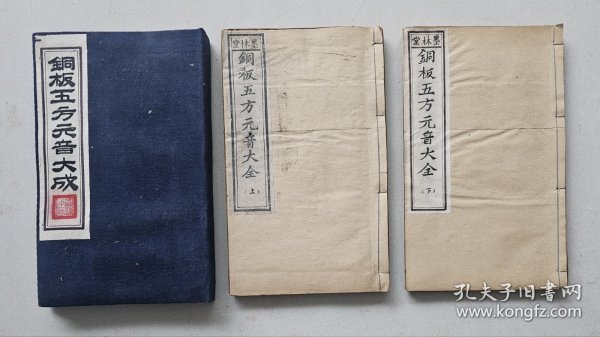 銅板五方元音大成
墨林堂
銅板五方元音大全
（上）
墨林堂
銅板五方元音大全
（下）
孔夫子旧书网
www.kongfz.com